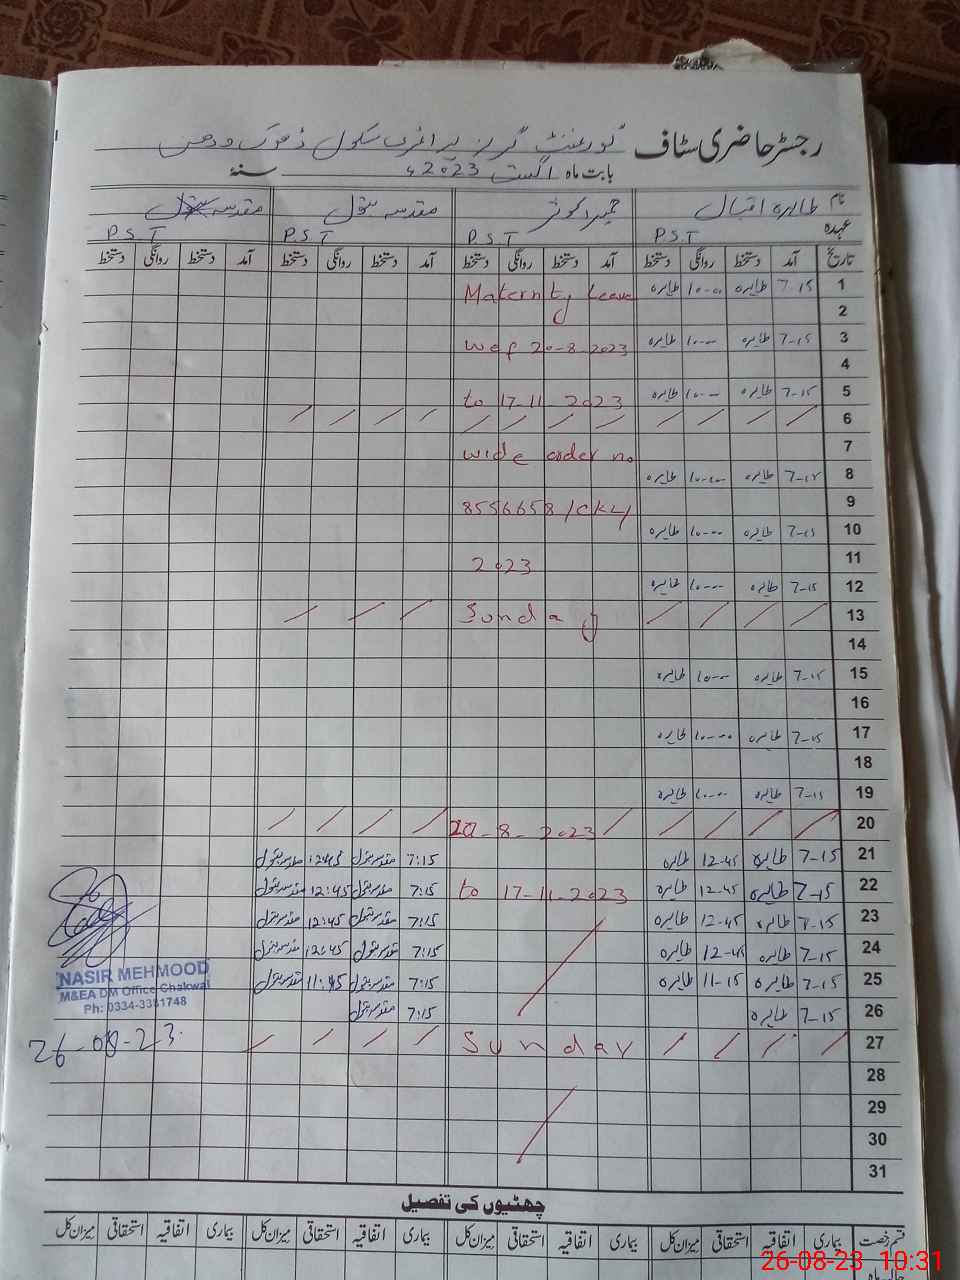 رجسٹر حاضری سٹاف گورنمنٹ گرلز پرائمری سکول ڈھوک
بابت ماہ اگست 2023ء سنۂ
نام طاہرہ اقبال مقدسہ بتول مقدسہ
عہدہ P.S.T P.S.T P.S.T P.S.T
تاریخ آمد دستخط روانگی دستخط آمد دستخط روانگی دستخط آمد دستخط روانگی دستخط آمد دستخط روانگی دستخط
1 7-15 طاہرہ 10-00 طاہرہ Maternity Leave
2
3 7-15 طاہرہ 10-00 طاہرہ wef 20-8-2023
4
5 7-15 طاہرہ 10-00 طاہرہ to 17-11-2023
6
7 wide order no
8 7-15 طاہرہ 10-00 طاہرہ
9 8556658/CKL/
10 7-15 طاہرہ 10-00 طاہرہ
11 2023
12 7-15 طاہرہ 10-00 طاہرہ
13 Sunday
14
15 7-15 طاہرہ 10-00 طاہرہ
16
17 7-15 طاہرہ 10-00 طاہرہ
18
19 7-15 طاہرہ 10-00 طاہرہ
20 20-8-2023
21 7-15 طاہرہ 12-45 طاہرہ 7:15 مقدسہ بتول 12:45 مقدسہ بتول
22 7-15 طاہرہ 12-45 طاہرہ to 17-11-2023 7:15 مقدسہ بتول 12:45 مقدسہ بتول
23 7-15 طاہرہ 12-45 طاہرہ 7:15 مقدسہ بتول 12:45 مقدسہ بتول
24 7-15 طاہرہ 12-45 طاہرہ 7:15 مقدسہ بتول 12:45 مقدسہ بتول
25 7-15 طاہرہ 11-15 طاہرہ 7:15 مقدسہ بتول 11:45 مقدسہ بتول
26 7-15 طاہرہ 7:15 مقدسہ بتول
27 Sunday
28
29
30
31
NASIR MEHMOOD
M&EA DM Office Chakwal
Ph: 0334-3381748
26-08-23
چھٹیوں کی تفصیل
قسم رخصت بیماری اتفاقیہ استحقاقی میزان کل بیماری اتفاقیہ استحقاقی میزان کل بیماری اتفاقیہ استحقاقی میزان کل بیماری اتفاقیہ استحقاقی میزان کل
26-08-23 10:31